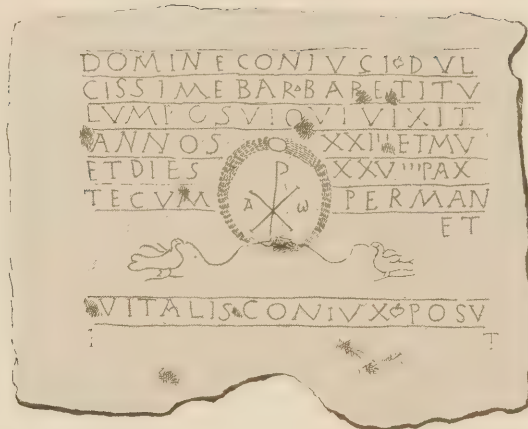 DOMINE CONIVGI DVL
CISSIME BARBARE TITV
LVM POSVI QVI VIXIT
ANNOS XXIII ET M V
ET DIES XXVIII PAX
TECVM A ☧ ω PERMAN
ET
VITALIS CONIVX POSV
T